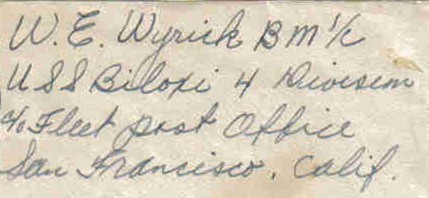 W. E. Wyrick BM 1/c
USS Biloxi 4 Division
c/o Fleet post Office
San Francisco, Calif.